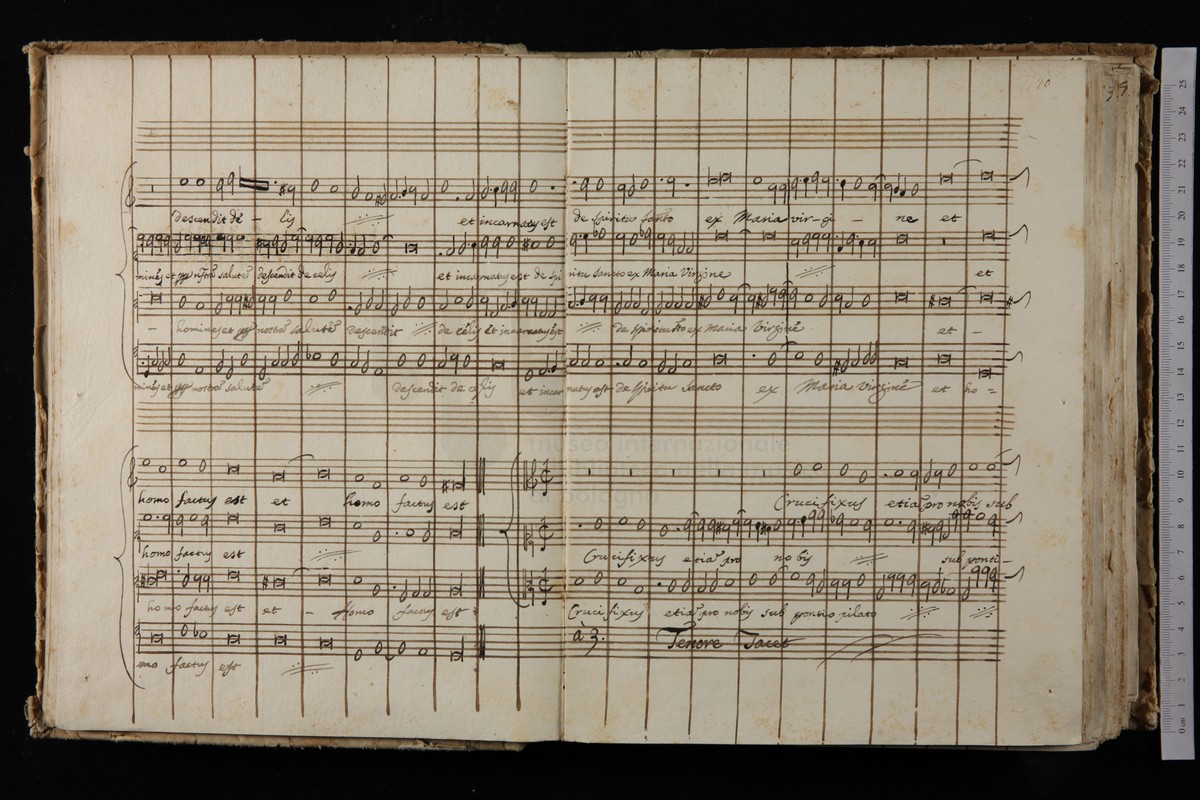 10
35
descendit de - lis et incarnatus est de spiritu santo ex Maria vir-gi - ne et
mines et nostra salute descendit de celis et incarnatus est de spi ritu sancto ex Maria Virgine et
- homines et nostra salute descendit de celis et incarnatus est de spiritu sto ex Maria Virgine et -
mines et nostra salute descendit de celis et incar natus est de spiritu sancto ex Maria virgine et ho =
homo factus est et homo factus est
homo factus est
homo factus est et - homo factus est
mo factus est
Crucifixus etia pro nobis sub
Crucifixus etia pro nobis sub ponti -
Crucifixus etia pro nobis sub pontio pilato
à 3. Tenore Tacet
museo internazionale
bologna
0 cm 1 2 3 4 5 6 7 8 9 10 11 12 13 14 15 16 17 18 19 20 21 22 23 24 25